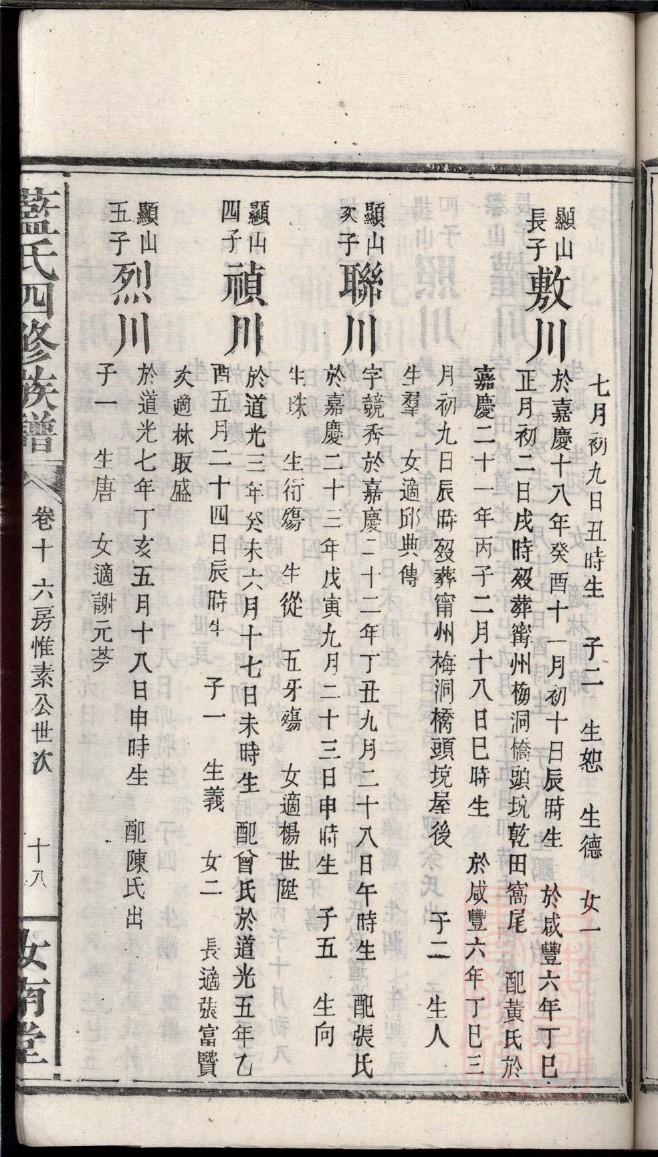 七月初九日丑時生 子二 生恕 生德 女一
顯山長子 敷川 於嘉慶十八年癸酉十一月初十日辰時生 於咸豐六年丁巳
正月初二日戌時歿葬甯州梅洞橋頭垸乾田窩尾 配黃氏於
嘉慶二十一年丙子二月十八日巳時生 於咸豐六年丁巳三
月初九日辰時歿葬甯州梅洞橋頭垸屋後 子二 生人
生羣 女適邱典傳
顯山次子 聯川 字競秀於嘉慶二十二年丁丑九月二十八日午時生 配張氏
於嘉慶二十三年戊寅九月二十三日申時生 子五 生向
生珠 生衍殤 生從 五牙殤 女適楊世陞
顯山四子 禎川 於道光三年癸未六月十七日未時生 配曾氏於道光五年乙
酉五月二十四日辰時生 子一 生義 女二 長適張富贒
次適林取盛
顯山五子 烈川 於道光七年丁亥五月十八日申時生 配陳氏出
子一 生唐 女適謝元芩
藍氏四修族譜 卷十 六房惟素公世次 十八 汝南堂